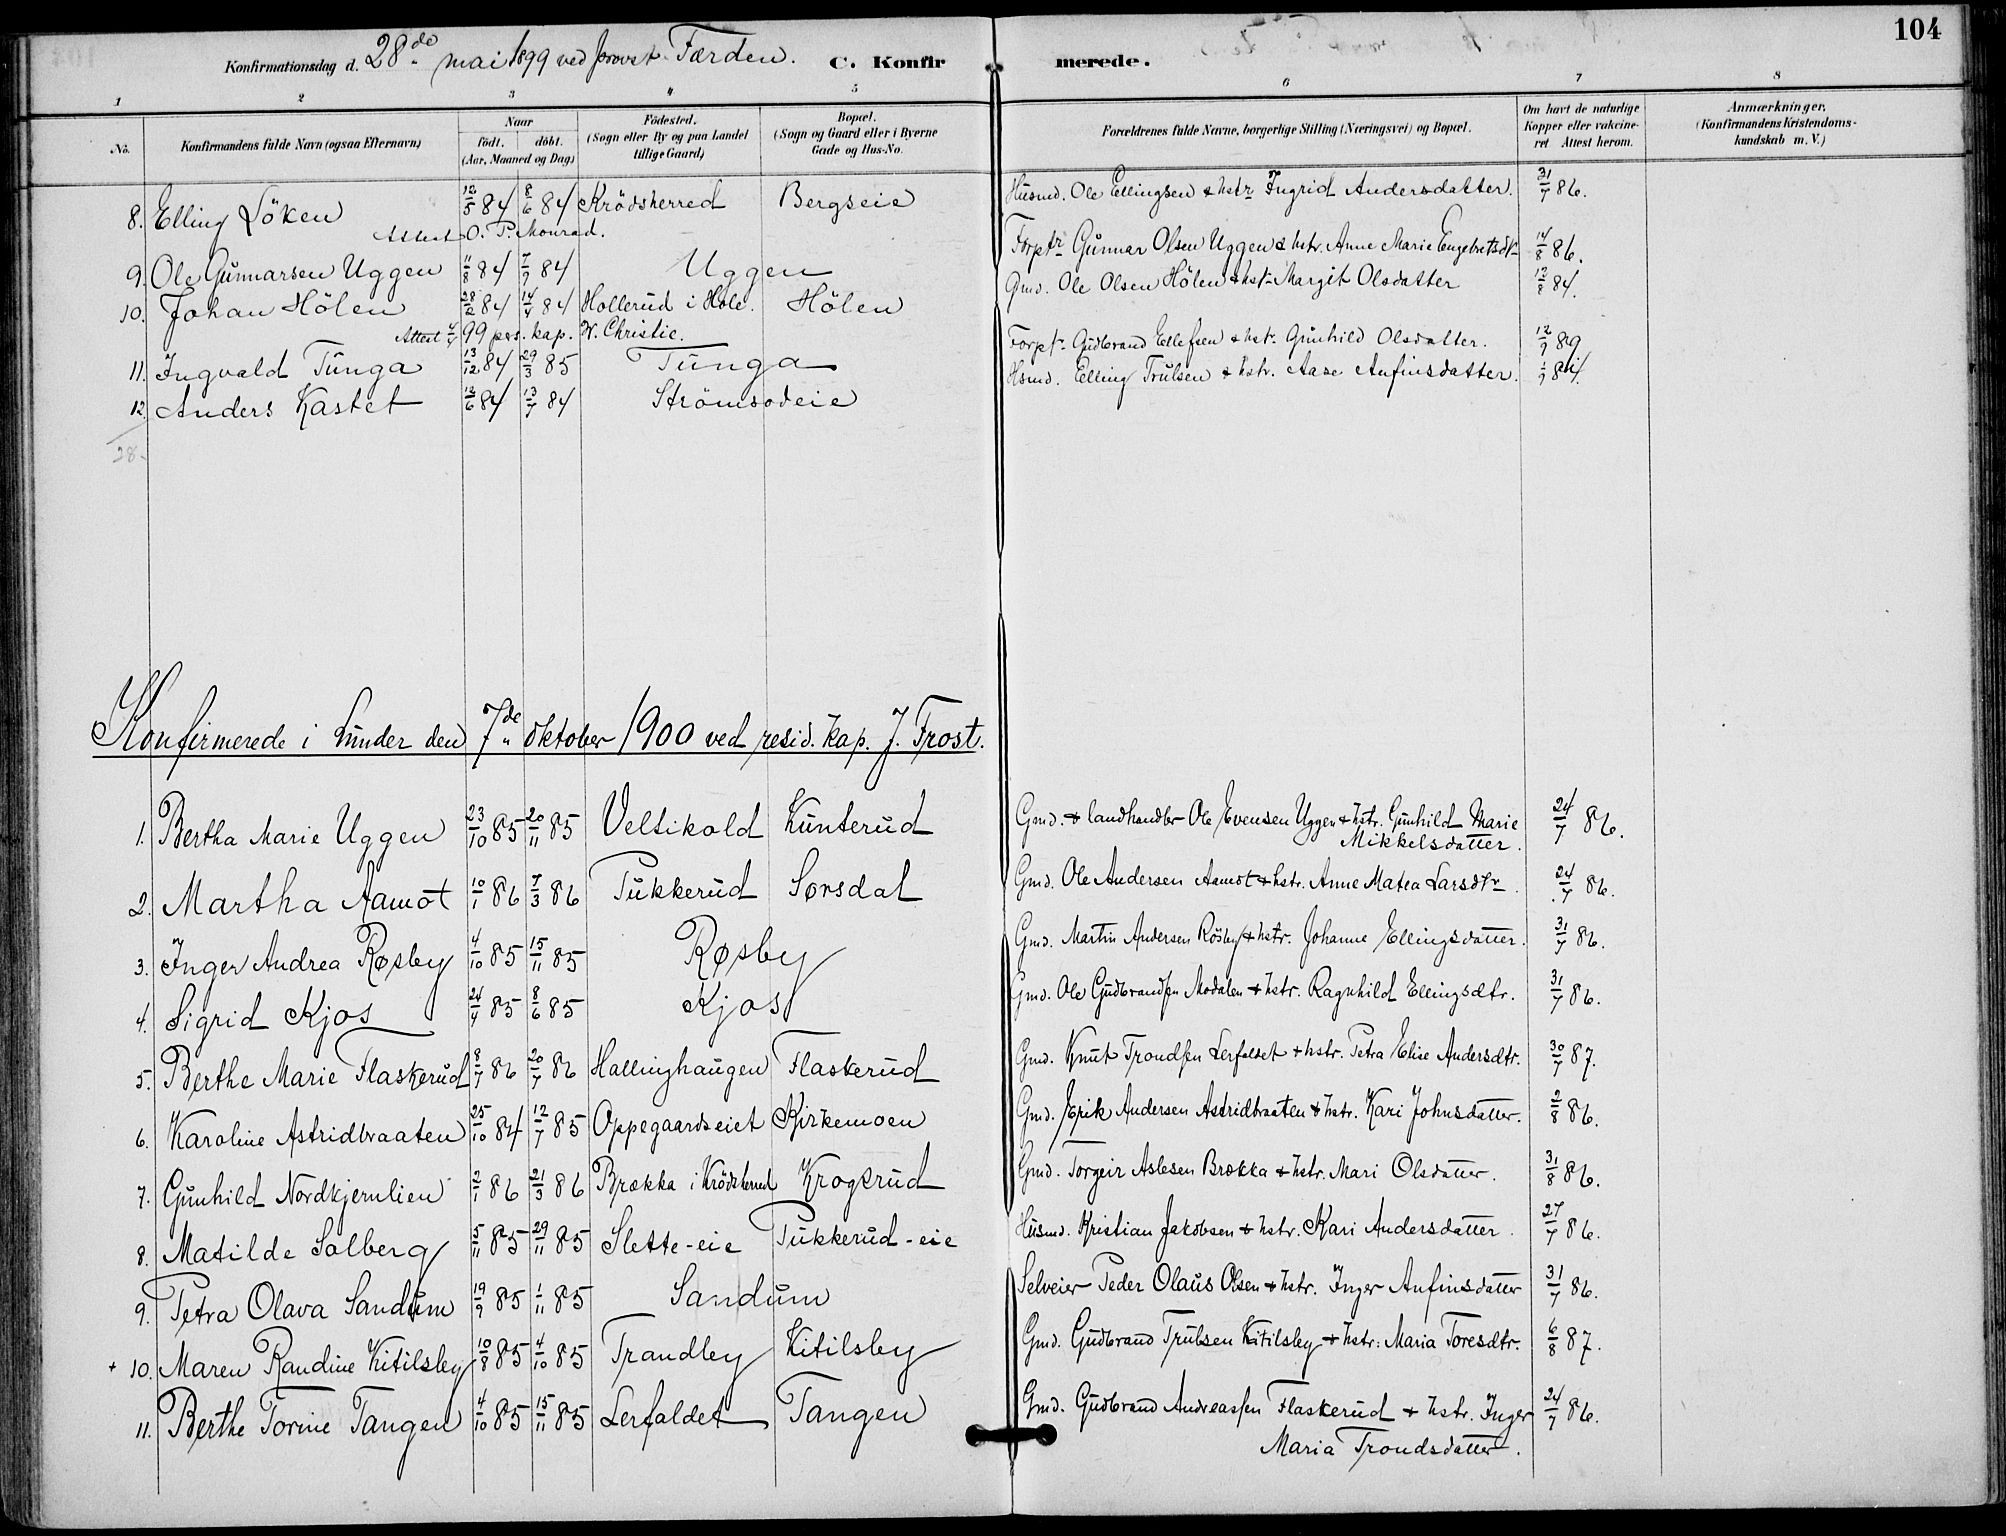 104
Konfirmationsdag d. 28de mai 1899 ved provst Færden. C. Konfirmerede.
1 2 3 4 5 6 7 8
No. Konfirmandens fulde Navn (ogsaa Efternavn) Naar födt. döbt. (Aar, Maaned og Dag) Födested. (Sogn eller By og paa Landet tillige Gaard) Bopæl. (Sogn og Gaard eller i Byerne Gade og Hus-No. Forældrenes fulde Navne, borgerlige Stilling (Næringsvei) og Bopæl. Om havt de naturlige Kopper eller vakcineret. Attest herom. Anmærkninger. (Konfirmandens Kristendomskundskab m. V.)
8. Elling Löken 12/5 84 8/6 84 Krödsherred Bergseie Husmd. Ole Ellingsen & hstr Ingrid Andersdatter. 31/7 86.
Attest O. P. Monrad.
9. Ole Gunnarsen Uggen 11/8 84 7/9 84 Uggen Forptr Gunnar Olsen Uggen & hstr. Anne Marie Engebretsdtr 14/8 86.
10. Johan Hölen 28/2 84 14/4 84 Hollerud i Hole. Hölen Gmd. Ole Olsen Hölen & hstr Margit Olsdatter 12/8 84.
Attest 4/4 99 pers. kap. W. Christie.
11. Ingvald Tunga 13/12 84 29/3 85 Tunga Forptr Gudbrand Ellefsen & hstr. Gunhild Olsdatter. 12/9 89
12. Anders Kastet 12/6 84 13/7 84 Strömsodeie Hsmd. Elling Trulsen & hstr. Aase Anfinsdatter.
28.
Konfirmerede i Lunder den 7de oktober 1900 ved resid. kap. J. Frost.
1. Bertha Marie Uggen 23/10 85 20/11 85 Veltikold Kunterud Gmd. & landhandler Ole Evensen Uggen & hstr. Gunhild Marie Mikkelsdatter. 24/7 86.
2. Martha Aamot 10/1 86 7/3 86 Tukkerud Sørsdal Gmd. Ole Andersen Aamot & hstr. Anne Matea Larsdtr. 24/7 86.
3. Inger Andrea Røsby 4/10 85 15/11 85 Røsby Gmd. Martin Andersen Rösby & hstr. Johanne Ellingsdatter. 31/7 86.
4. Sigrid Kjos 24/4 85 8/6 85 Kjos Gmd. Ole Gudbrandsen Modalen & hstr. Ragnhild Ellingsdtr. 31/7 86.
5. Berthe Marie Flaskerud 8/7 86 20/7 86 Hallinghaugen Flaskerud Gmd. Knut Trondsen Lerfaldet & hstr. Petra Elise Andersdtr. 30/7 87.
6. Karoline Astridbraaten 25/10 84 12/7 85 Oppegaardseiet Kjirkemoen Gmd. Erik Andersen Astridbraaten & hstr. Kari Johnsdatter. 2/8 86.
7. Gunhild Nordkjernlien 2/1 86 21/3 86 Brække i Krödsherred Krogsrud Gmd. Torgeir Aslesen Brække & hstr. Mari Olsdatter. 31/8 86.
8. Matilde Solberg 5/11 85 29/11 85 Slette-eie Tukkerud-eie Husmd. Kristian Jakobsen & hstr. Kari Andersdatter. 27/7 86.
9. Petra Olava Sandum 19/9 85 1/11 85 Sandum Selveier Peder Olaus Olsen & hstr. Inger Anfinsdatter 31/7 86.
+ 10. Maren Randine Kitilsby 10/8 85 4/10 85 Trandby Kitilsby Gmd. Gudbrand Trulsen Kitilsby & hstr: Maria Toresdtr. 6/8 87.
11. Berthe Torine Tangen 4/10 85 15/11 85 Lerfaldet Tangen Gmd. Gudbrand Andreassen Flaskerud & hstr. Inger 24/7 86.
Maria Trondsdatter.